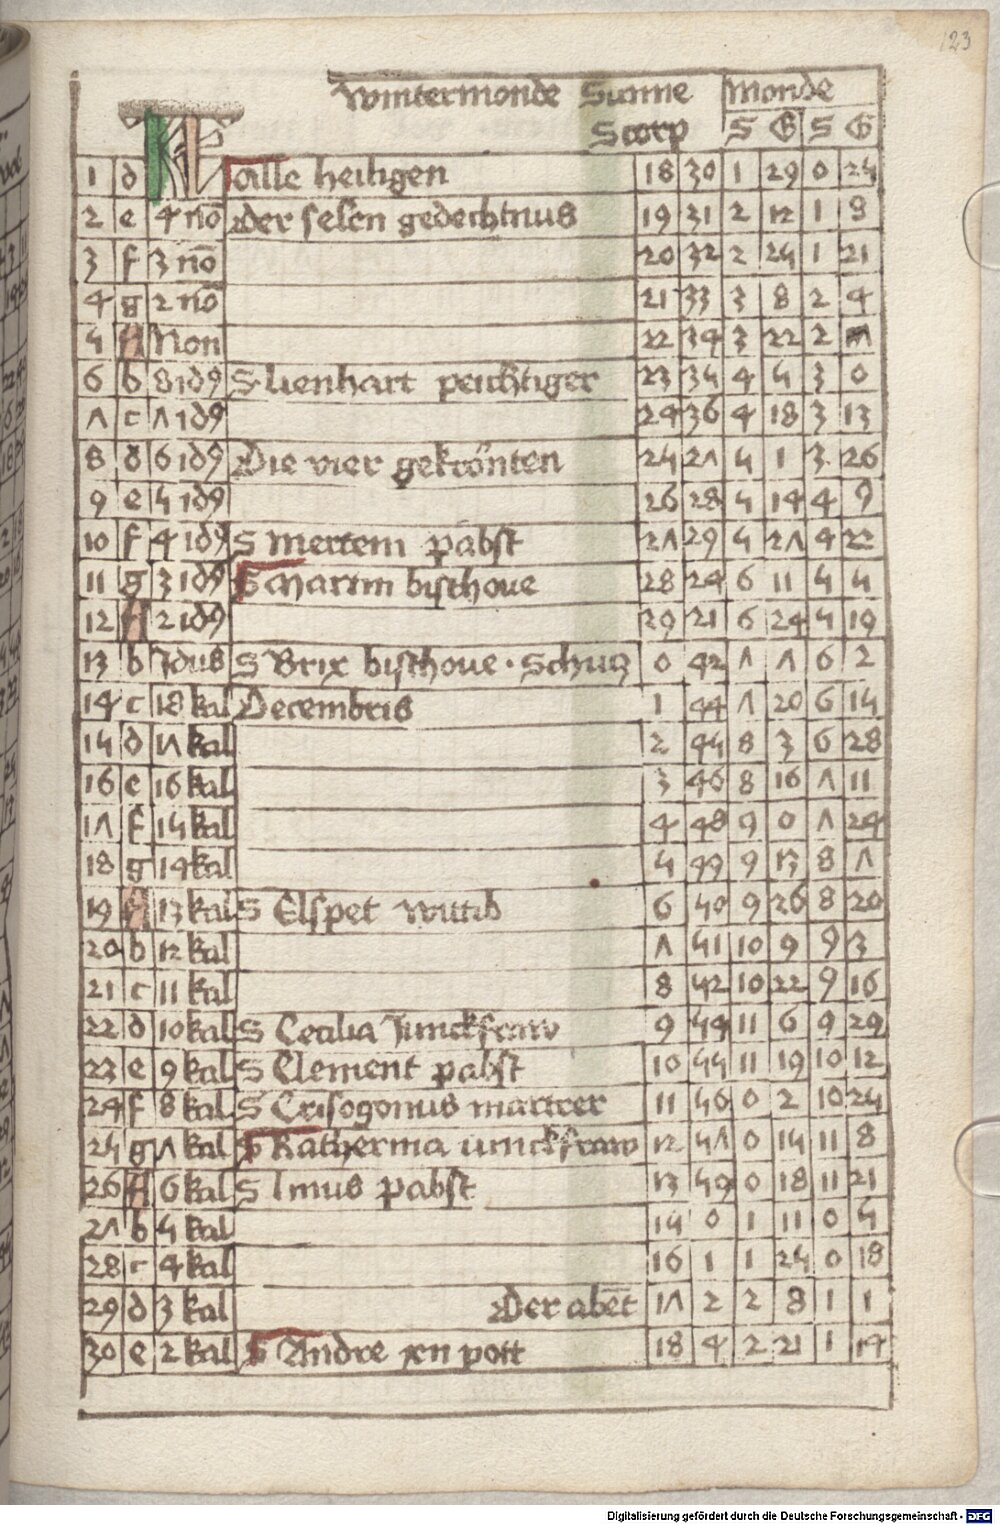 123
Wintermonde Sunne Monde
Scorp S G S G
1 d KL alle heiligen 18 30 1 29 0 25
2 e 4 no Der selen gedechtnus 19 31 2 12 1 8
3 f 3 no 20 32 2 25 1 21
4 g 2 no 21 33 3 8 2 4
5 A Non 22 34 3 22 2
6 b 8 id9 S lienhart peichtiger 23 35 4 5 3 0
7 c 7 id9 24 36 4 18 3 13
8 d 6 id9 Die vier gekrönten 25 27 5 1 3 26
9 e 5 id9 26 28 5 14 4 9
10 f 4 id9 S Mertein pabst 27 29 5 27 4 22
11 g 3 id9 S Martin bischoue 28 25 6 11 5 5
12 A 2 id9 29 21 6 24 5 19
13 b Idus S Brix bischoue · Schucz 0 42 7 7 6 2
14 c 18 kal Decembris 1 44 7 20 6 15
15 d 17 kal 2 45 8 3 6 28
16 e 16 kal 3 46 8 16 7 11
17 f 15 kal 4 48 9 0 7 24
18 g 14 kal 5 49 9 13 8 7
19 A 13 kal S Elspet wittib 6 50 9 26 8 20
20 b 12 kal 7 51 10 9 9 3
21 c 11 kal 8 52 10 22 9 16
22 d 10 kal S Cecilia Junckfraw 9 54 11 6 9 29
23 e 9 kal S Clement pabst 10 55 11 19 10 12
24 f 8 kal S Crisogonus martrer 11 56 0 2 10 25
25 g 7 kal S Katherina iunckfraw 12 57 0 15 11 8
26 A 6 kal S linus pabst 13 59 0 18 11 21
27 b 5 kal 15 0 1 11 0 5
28 c 4 kal 16 1 1 25 0 18
29 d 3 kal Der abet 17 2 2 8 1 1
30 e 2 kal S Andre xn pott 18 4 2 21 1 14
Digitalisierung gefördert durch die Deutsche Forschungsgemeinschaft - DFG